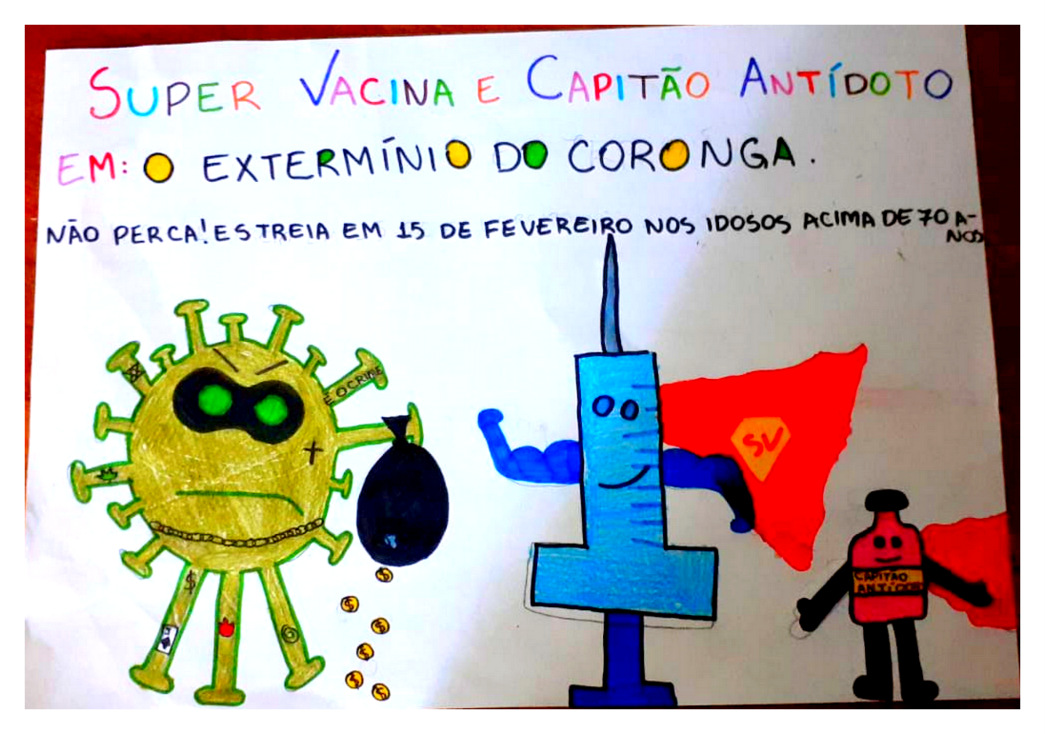 SUPER VACINA E CAPITÃO ANTÍDOTO
EM: O EXTERMÍNIO DO CORONGA.
NÃO PERCA! ESTREIA EM 15 DE FEVEREIRO NOS IDOSOS ACIMA DE 70 A-
NOS
ÉOCRIME
SV
CAPITÃO
ANTÍDOTO
$